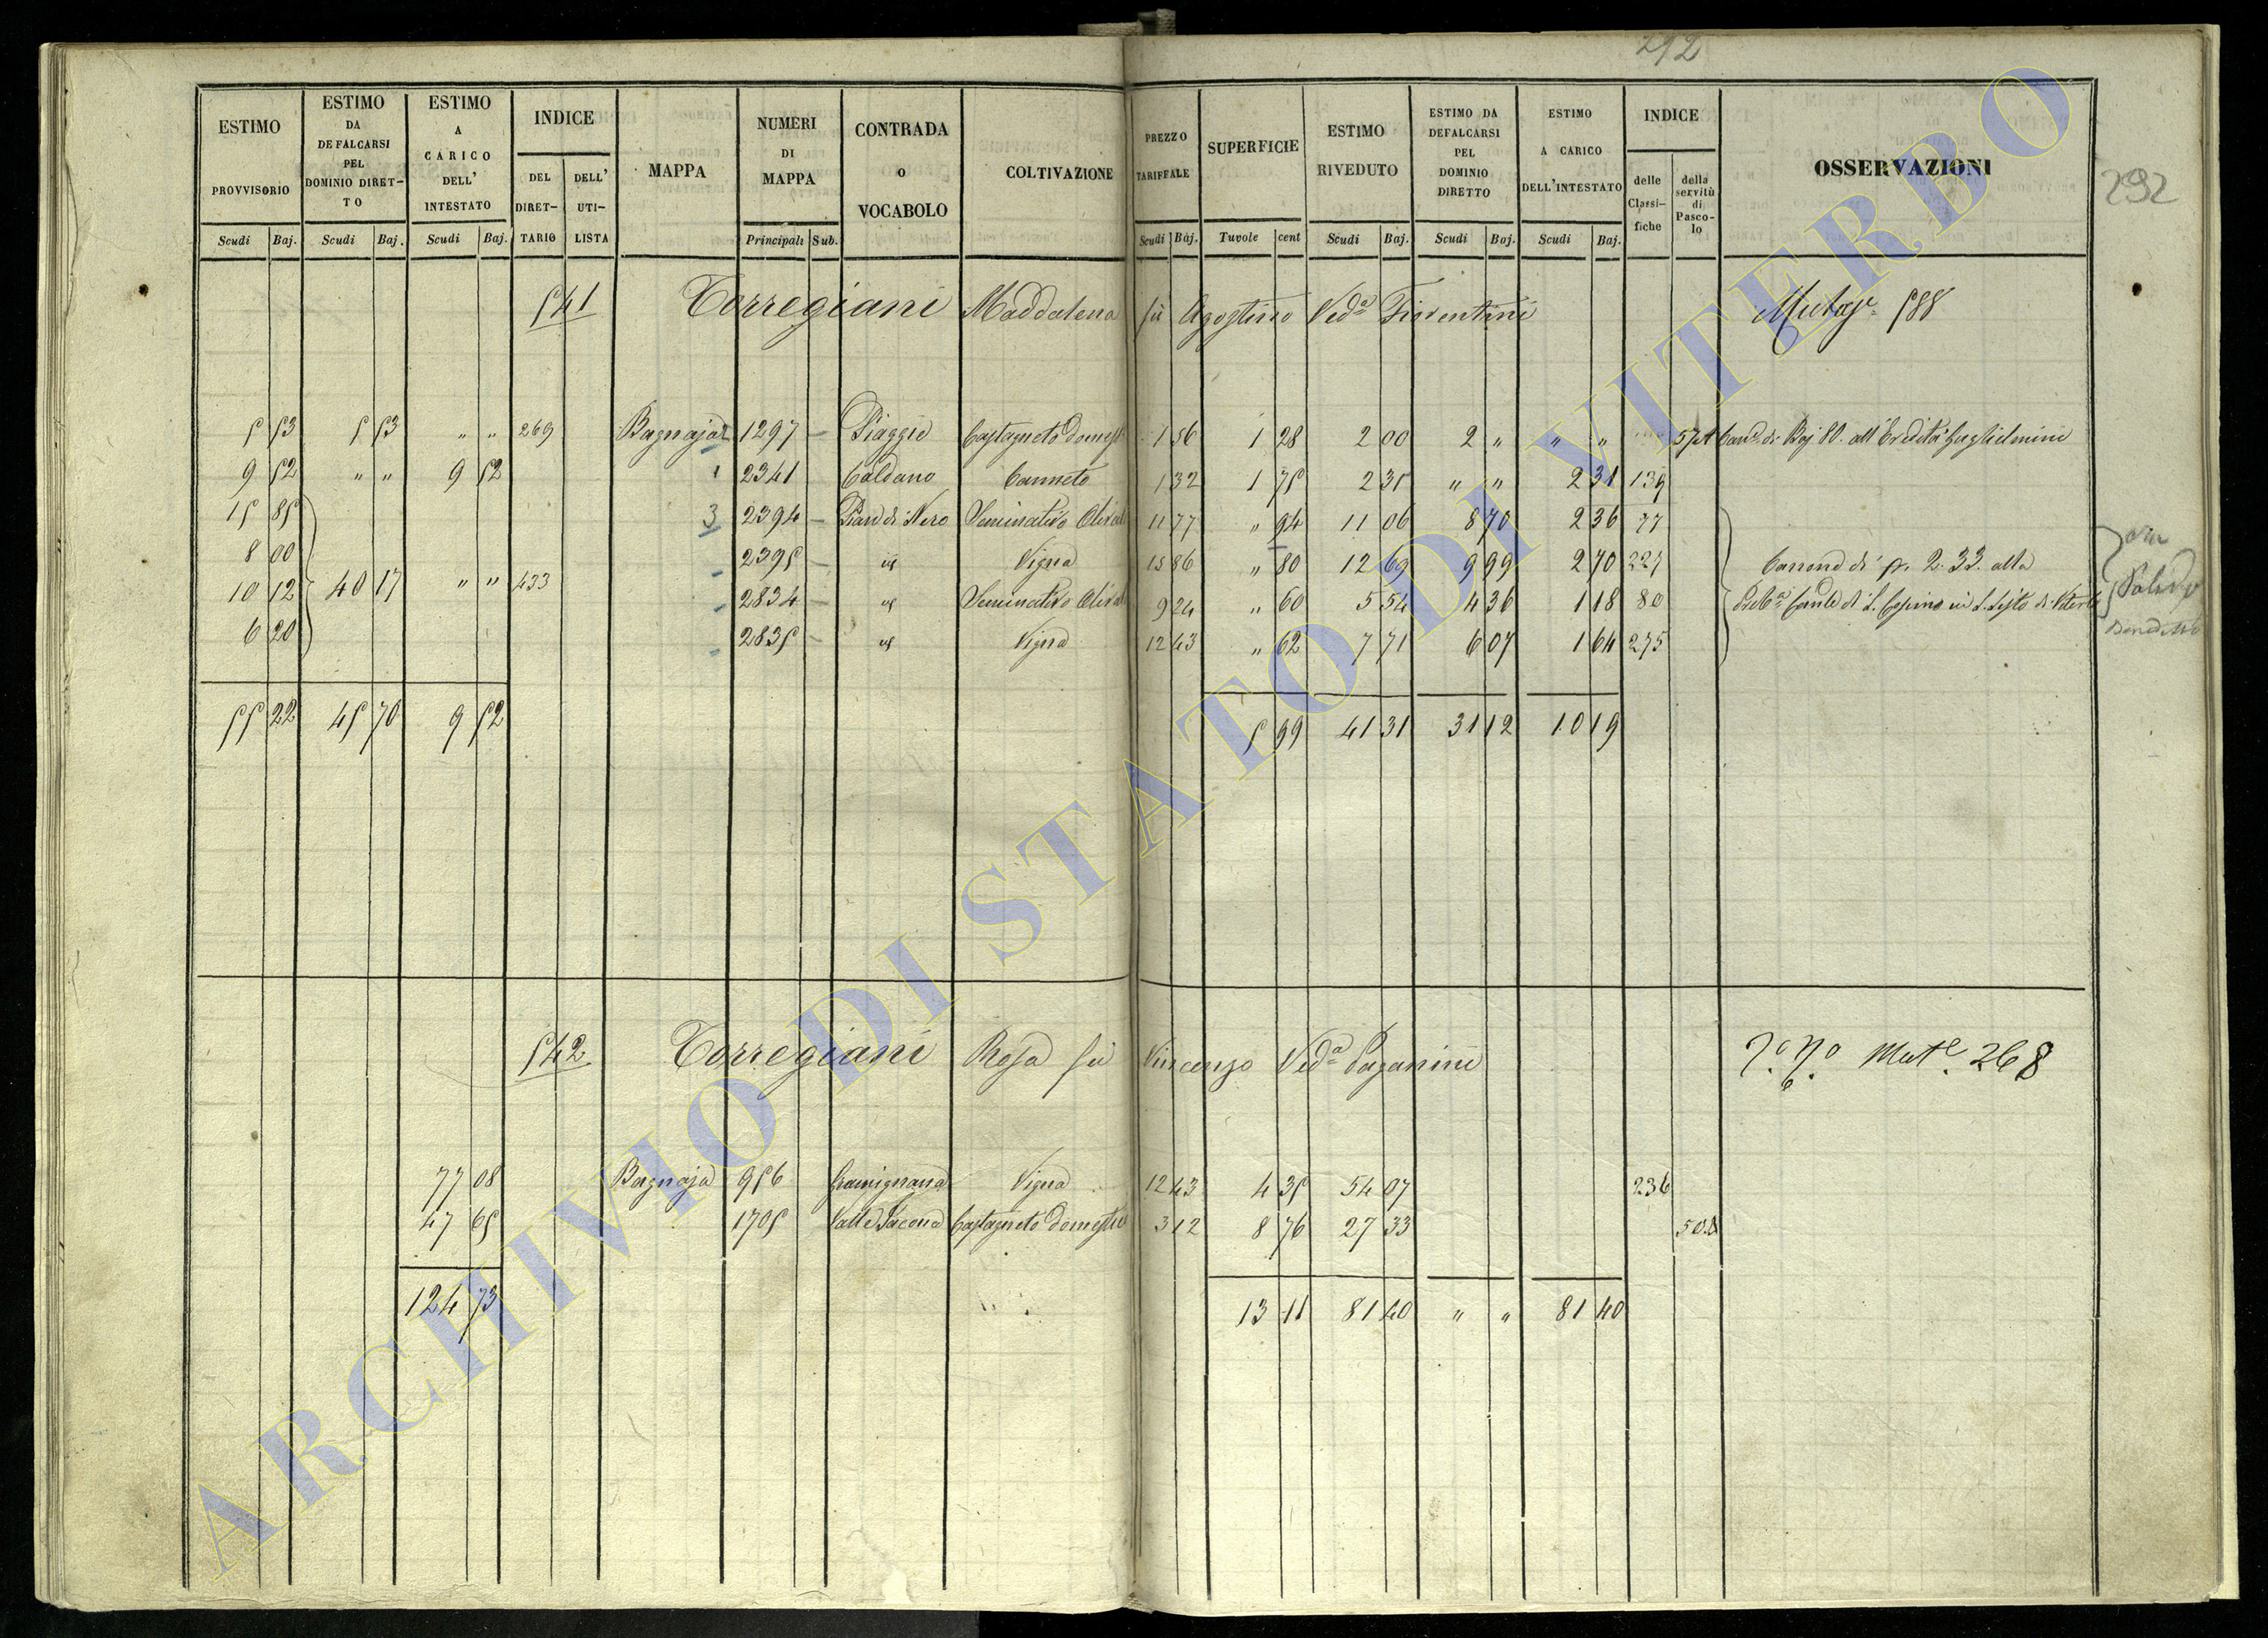 292
292
ESTIMO PROVVISORIO Scudi Baj.
ESTIMO DA DEFALCARSI PEL DOMINIO DIRET-TO Scudi Baj.
ESTIMO A CARICO DELL' INTESTATO Scudi Baj.
INDICE DEL DIRET-TARIO DELL' UTI-LISTA
MAPPA
NUMERI DI MAPPA Principali Sub.
CONTRADA o VOCABOLO
COLTIVAZIONE
PREZZO TARIFFALE Scudi Baj.
SUPERFICIE Tavole cent
ESTIMO RIVEDUTO Scudi Baj.
ESTIMO DA DEFALCARSI PEL DOMINIO DIRETTO Scudi Baj.
ESTIMO A CARICO DELL'INTESTATO Scudi Baj.
INDICE delle Classi-fiche della servitù di Pasco-lo
OSSERVAZIONI
541 Torregiani Maddalena fu Agostino Ved.a Fiorentini 588
5 53 5 53 " " 269 Bagnaja 2 1297 – Piaggie Castagneto Domest 1 56 1 28 2 00 2 " " " 57A Can.e di Baj 80. all'Eredità Guglielmini
9 52 " " 9 52 1 2341 Caldano Canneto 1 32 1 75 2 31 " " 2 31 139
15 85 3 2394 – Pian di Nero Seminativo Olivat 11 77 " 94 11 06 8 70 2 36 77
8 00 2395 – id Vigna 15 86 " 80 12 69 9 99 2 70 227 Canone di p. 2.33. alla
10 12 40 17 " " 433 2834 – id Seminativo Olivat 9 24 " 60 5 54 4 36 1 18 80 di S. in S. Sisto di Viterbo
6 20 2835 – id Vigna 12 43 " 62 7 71 6 07 1 64 275
Benedetto
55 22 45 70 9 52 5 99 41 31 31 12 10 19
542 Torregiani Rosa fu Vincenzo Ved.a Paganini Mut.e 268
77 08 Bagnaja 956 Gramignana Vigna 12 43 4 35 54 07 236
47 65 1705 Valle Castagneto Domestico 3 12 8 76 27 33 50
124 73 13 11 81 40 " " 81 40
ARCHIVIO DI STATO DI VITERBO